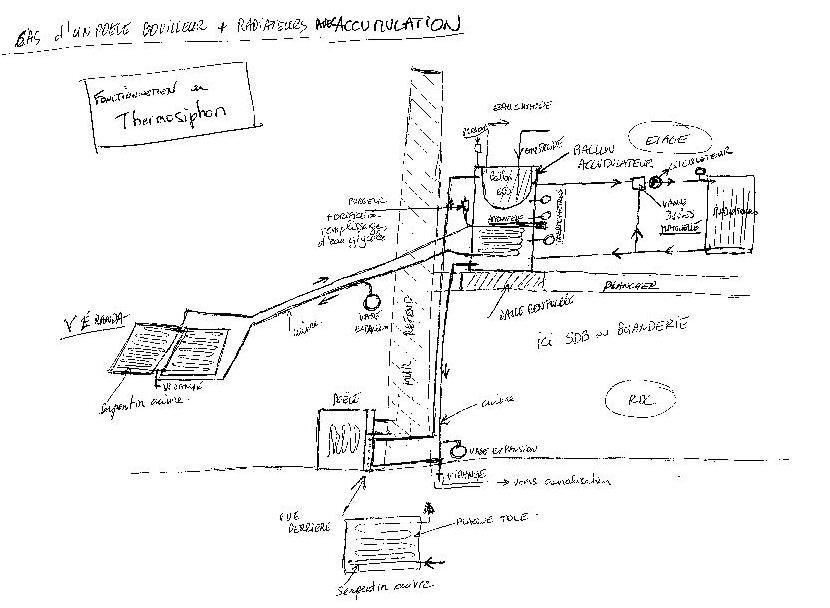 CAS d'UN POELE BOUILLEUR + RADIATEURS AVEC ACCUMULATION
Fonctionnement en
Thermosiphon
EAU CHAUDE
PURGE
EAU FROIDE
ETAGE
BALLON
ACCUMULATEUR
CIRCULATEUR
Ballon
PURGEUR
+ orifice
remplissage
d'eau glycolée
VANNE
3 VOIES
MANUELLE
RADIATEUR
PLANCHER
DALLE
ici SDB ou BUANDERIE
VÉRANDA
cuivre
VASE
EXPANSION
VIDANGE
Serpentin cuivre
MUR REFEND
RDC
POÊLE
cuivre
VASE EXPANSION
VIDANGE
→ vers canalisation
VUE
DERRIERE
PLAQUE TOLE
Serpentin cuivre